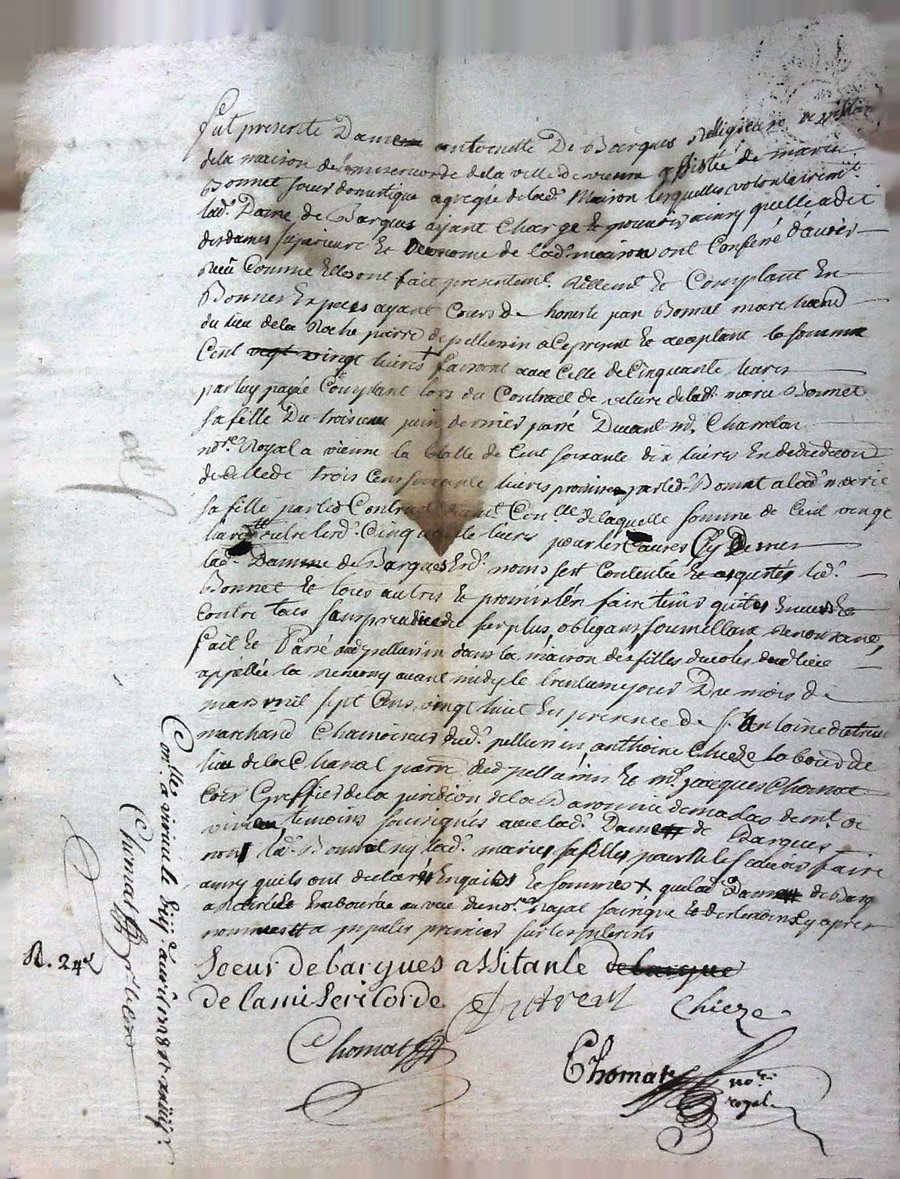 fut presente Dame antoinette De Barques Religieuse
de la maison de misericorde de la ville de vienne assistée de marie
Bonnet soeur domestique agregée de lad. Maison lesquelles volontairemt.
lad. Dame de Barques ayant Charge & pouvoir ainsy quelle a dit
des dames superieure Et oeconome de lad. maison ont Confessé d'avoir
Receu Comme Elles ont fait presentemt. Réllemt. Et Comptant En
Bonnes Especes ayant Cours de honeste Jean Bonnet marchand
du lieu de la Roche parroisse de pellussin a ce present Et acceptant la somme
Cent vingt livres faisant avec Celle de Cinquante livres
par luy payée Comptant lors du Contract de veture de lad. marie Bonnet
sa fille Du troisieme juin dernier passé Devant me. Chamelon
nore. Royal a vienne la totalle de Cent soixante dix livres En deduction
de Celle de trois Cens soixante livres promise par led. Bonnet a lad. marie
sa fille par led. Contract Con.lle de laquelle somme de Cent vingt
livres outre lesd. Cinquante livres pour les Causes Cy Dessus
lad. Dame de Barques Esd. noms sest Contentée Et a quitté led.
Bonnet Et tous autres Et promis l'en faire tenir quites Envers Et
Contre tous sans prejudice du surplus obligeant soumettant Renonceant
fait Et Passé aud. pellussin dans la maison des filles d'ecoles dud. lieu
appellée la avant midy le trentieme jour Du mois de
mars mil sept Cens vingt huit En presence de sr. antoine dutreul
marchand Chamoiseur dud. pellussin anthoine Chieze laboureur
lieu de la Chanal parre. dud. pellussin Et me. jacques Chomat
Greffier de la juridion de la Baronnie de malas demt. a
temoins soussignés avec lad. Dame de Barques
non led. Bonnet ny lad. marie sa fille pour ne le scavoir faire
ainsy quils ont declaré Enquis Et sommés + que lad. Dame de Bar
au veue du nore. Royal soussigné & des temoins cy apres
nommés
soeur de barques assistante de barque
de la misericorde Dutreul Chieze
Chomat
Chomat nore. royal
Conlle. a virieu le avril 1728
Chomat
R. 24s